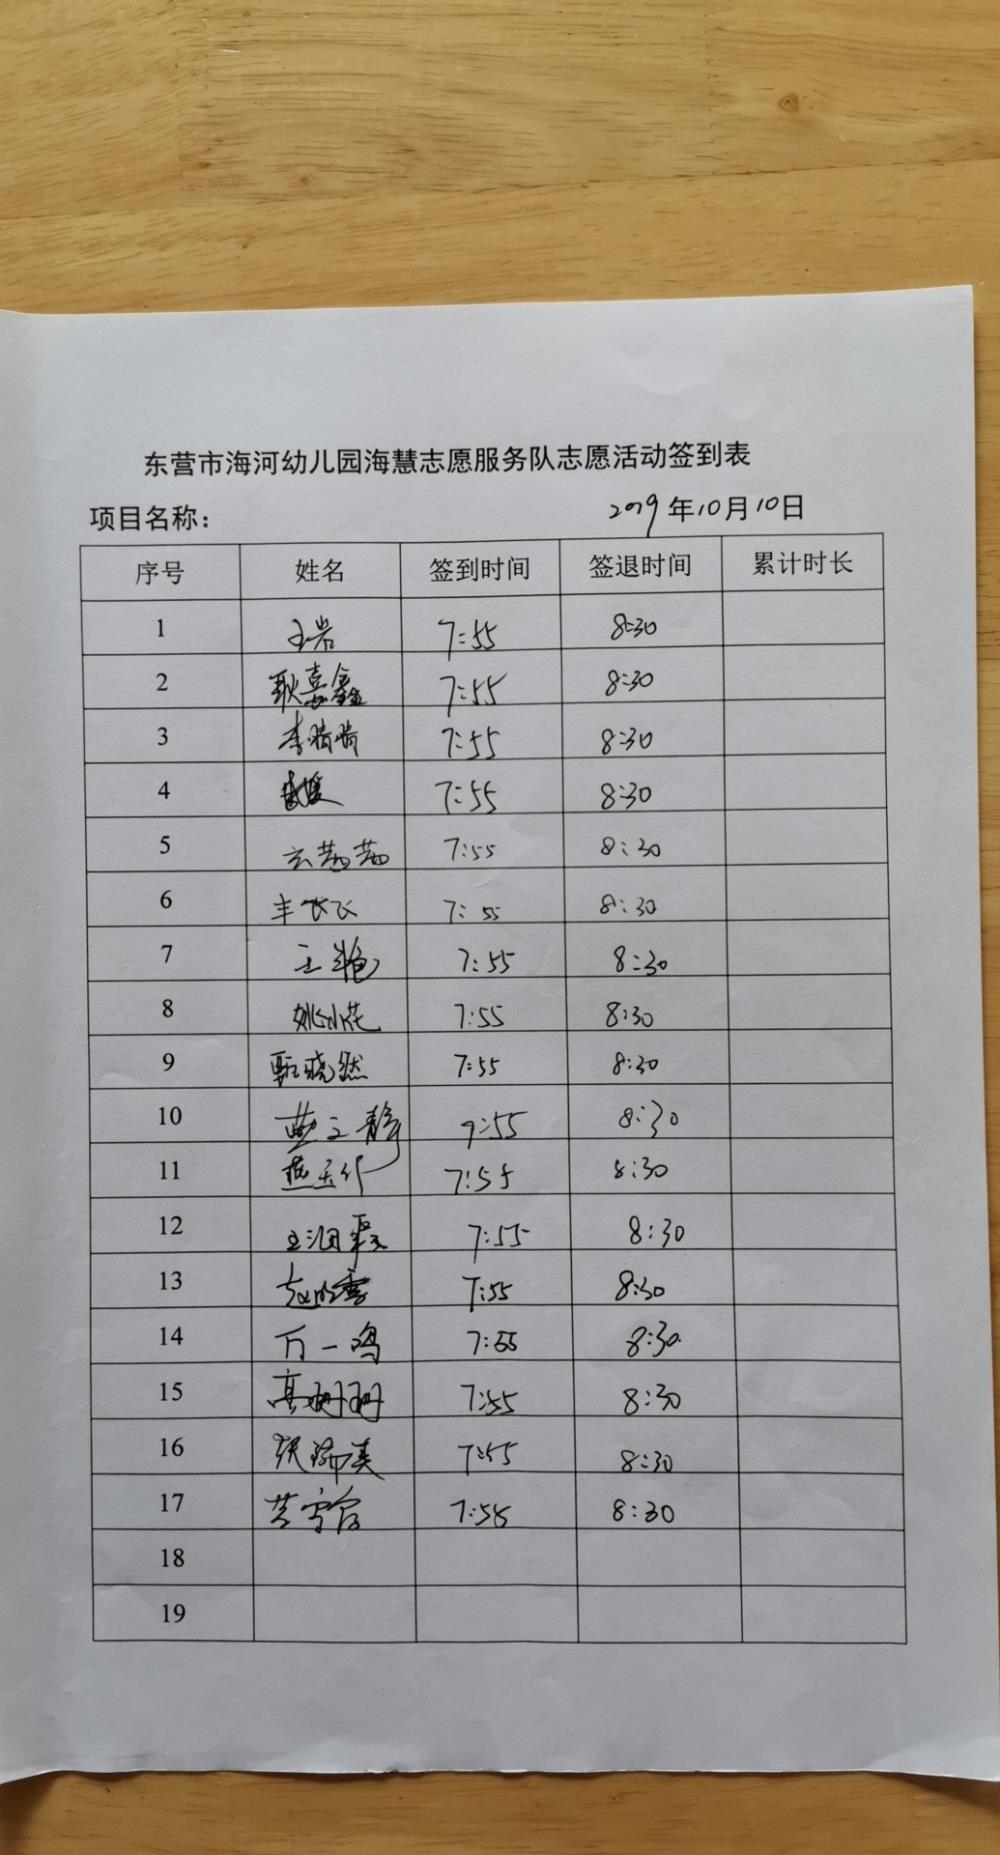 东营市海河幼儿园海慧志愿服务队志愿活动签到表
项目名称： 2019年10月10日
序号 姓名 签到时间 签退时间 累计时长
1 王岩 7:55 8:30
2 耿嘉鑫 7:55 8:30
3 李晴晴 7:55 8:30
4 7:55 8:30
5 云茜茜 7:55 8:30
6 丰飞飞 7:55 8:30
7 王艳 7:55 8:30
8 姚小花 7:55 8:30
9 甄晓然 7:55 8:30
10 静 7:55 8:30
11 燕玉 7:55 8:30
12 王 7:55 8:30
13 赵 7:55 8:30
14 万一鸣 7:55 8:30
15 高珊珊 7:55 8:30
16 张 7:55 8:30
17 7:55 8:30
18
19